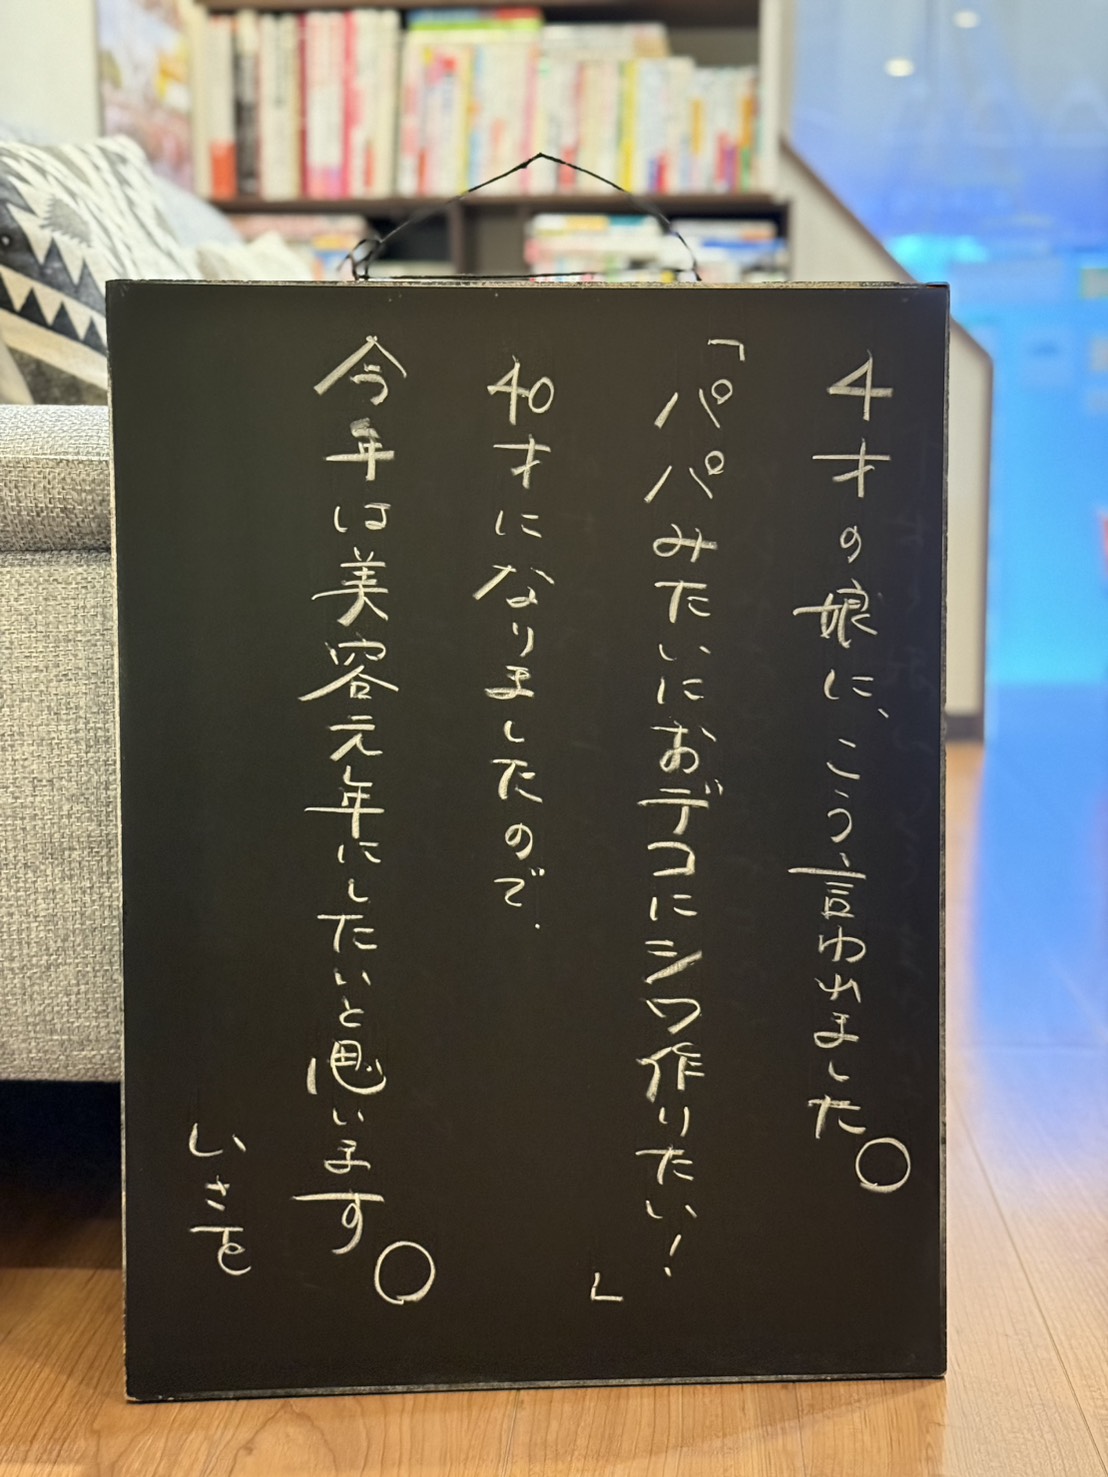 4才の娘に、こう言われました。
「パパみたいにおデコにシワ作りたい！」
40才になりましたので、
今年は美容元年にしたいと思います。
いさを